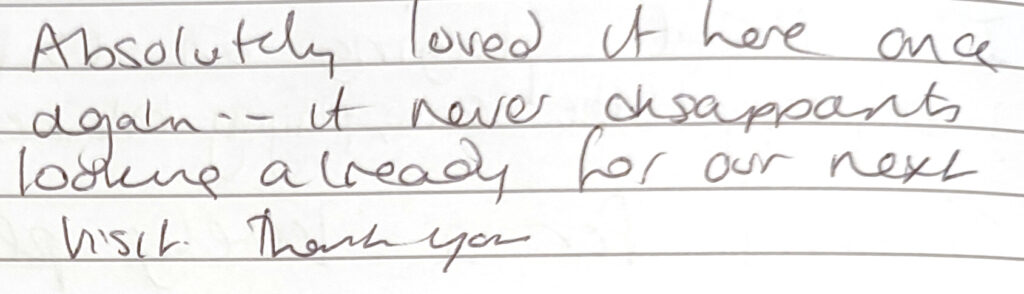 Absolutely loved it here once
again -- it never disappoints
looking already for our next
visit. Thank you